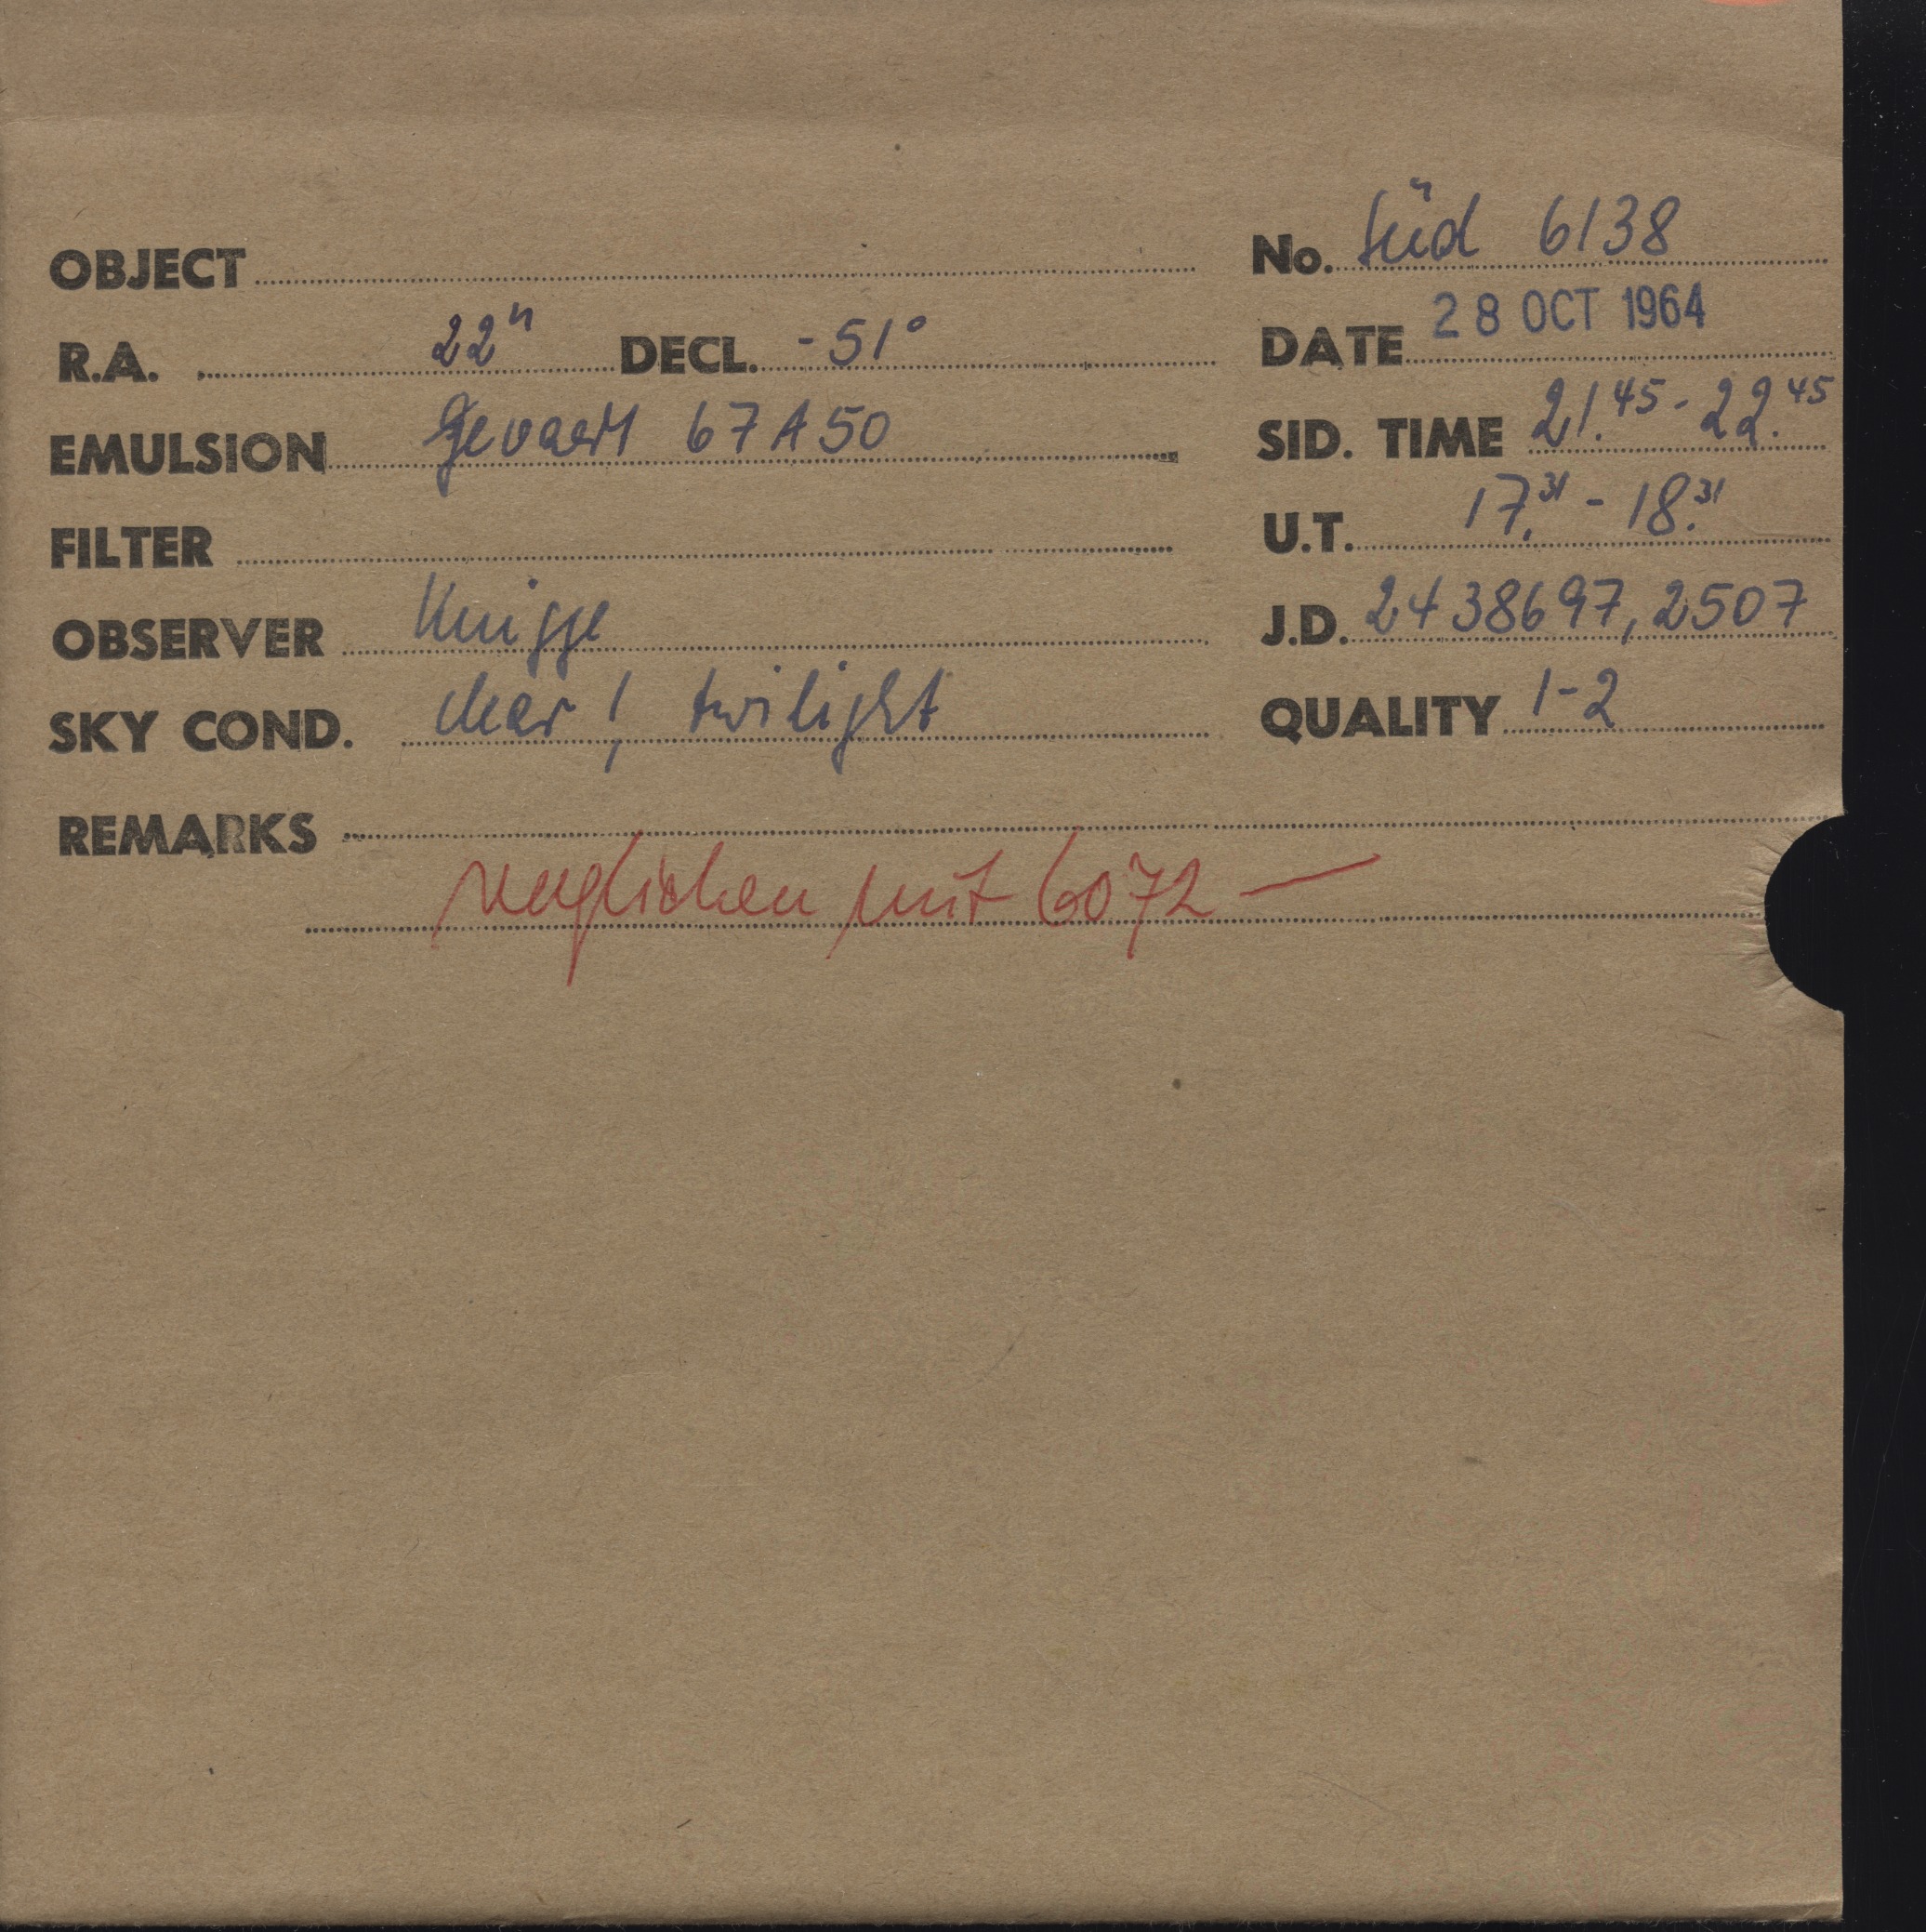 OBJECT
No. Süd 6138
R.A. 22h DECL. -51°
DATE 28 OCT 1964
EMULSION Gevaert 67A50
SID. TIME 21.45 - 22.45
FILTER
U.T. 17.31 - 18.31
OBSERVER Knigge
J.D. 2438697,2507
SKY COND. clear!, twilight
QUALITY 1-2
REMARKS
verglichen mit 6072 —